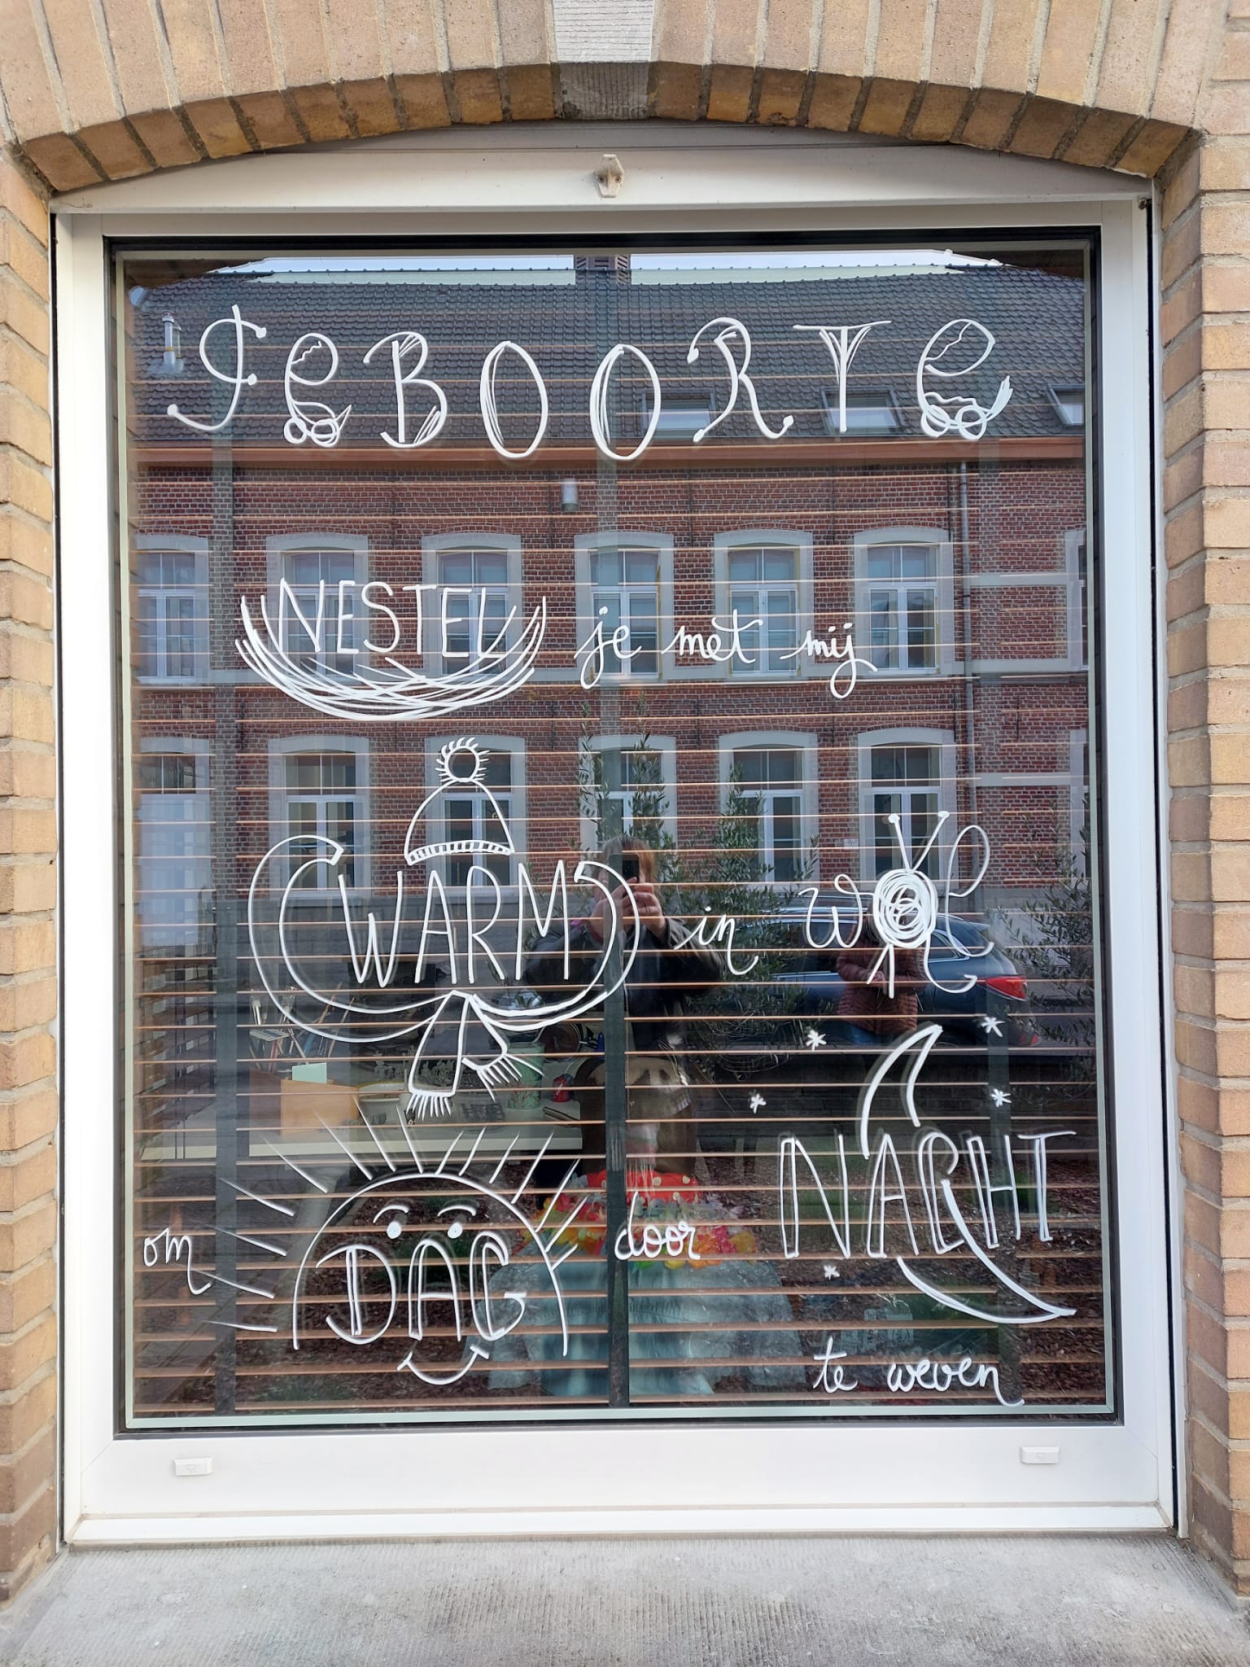 GEBOORTE
NESTEL je met mij
WARM in wol
om DAG door NACHT
te weven